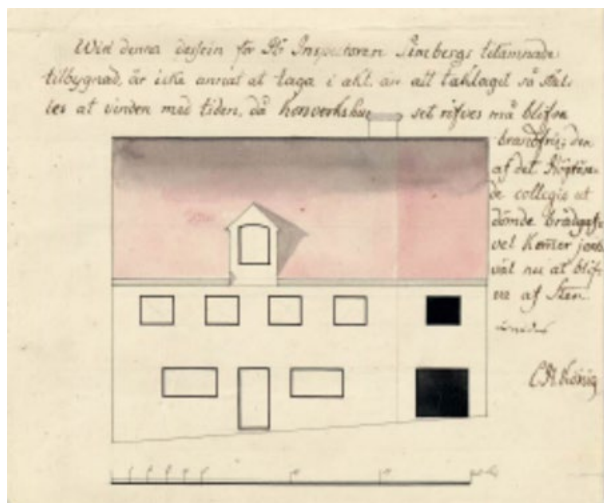 Wid denna dessein för Hr Inspectoren Limbergs tilämnade
tilbygnad, är icke annat at taga i akt, än att taklaget så stäl-
les at vinden med tiden, då korsverkshuset rifves må blifva
brandfri; den
af det Högtöfl.
de collegio ut
dömde brädgafv
vel kommer jem
väl nu at blif-
va af Sten
C. H. König